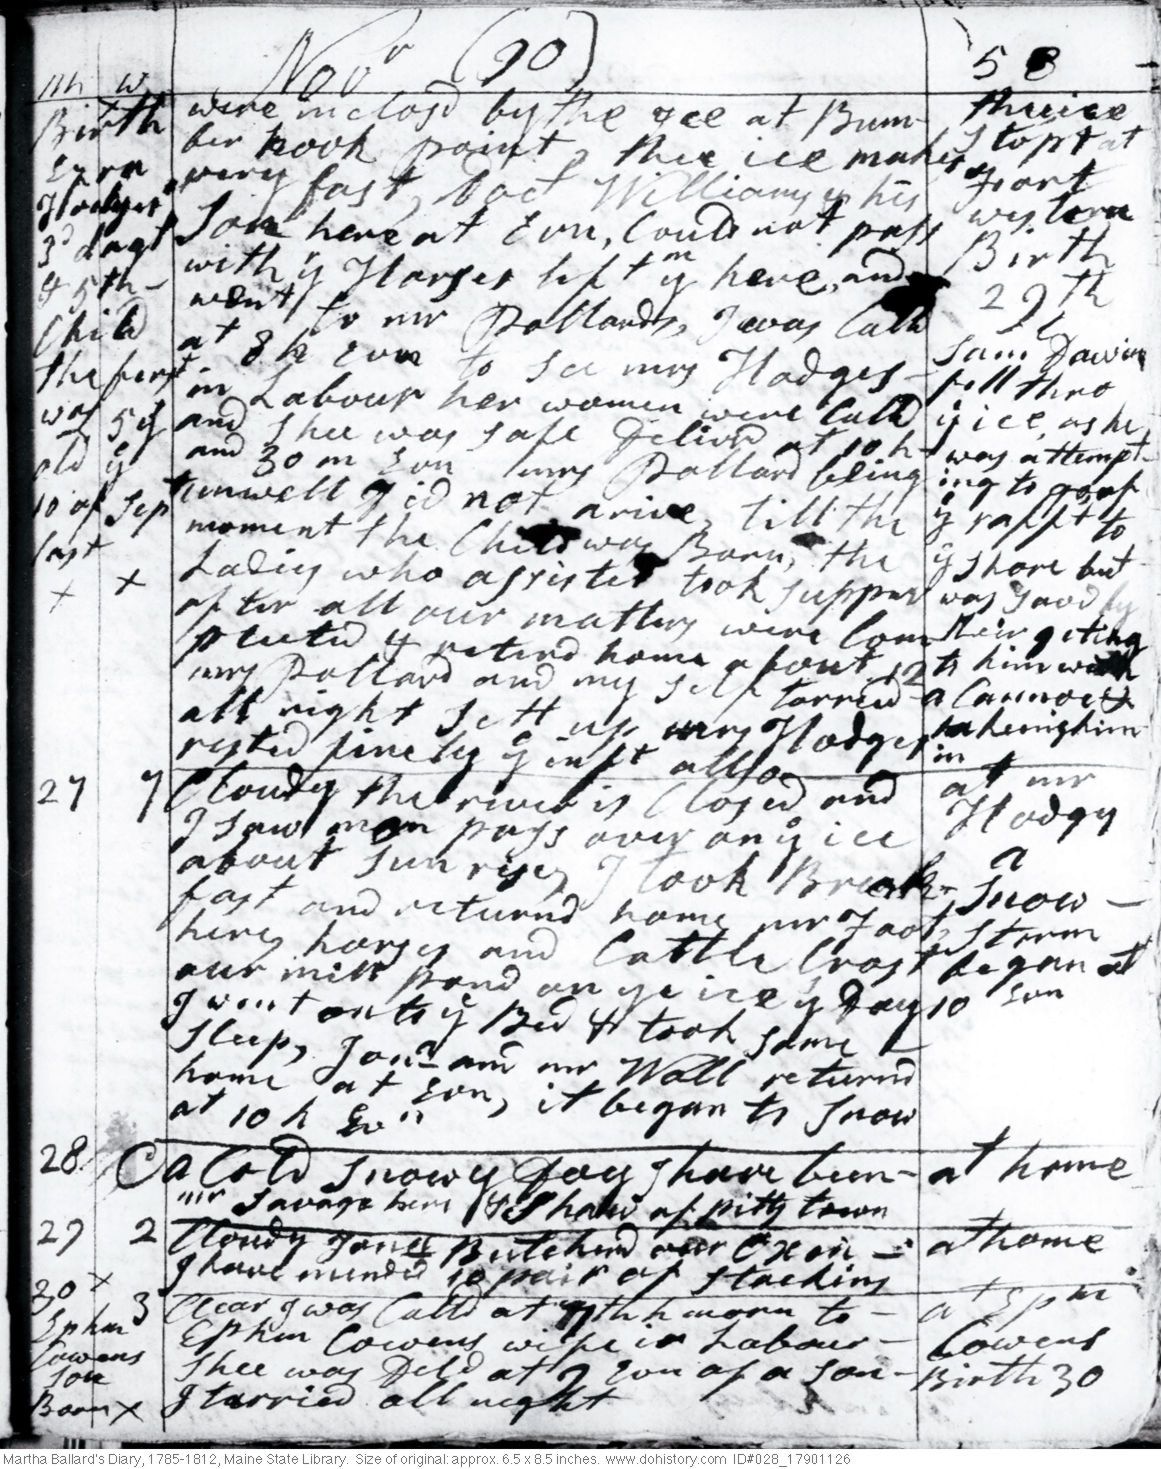 Novr (90) 58
m w
Birth
Ezra
Hodges
3d dagt
& 5th
Child
the first
was 5 y
old ye
10 of Sep
last
x x
were inclosd by the yce at Bum-
ber hook point, thee ice makes
very fast, Doct Williams & his
Son here at Evn, Could not pass
with ye Horses left ym here, and
went to mr Pollards, I was Calld
at 8 h Evn to see mrs Hodges
in Labour her women were Calld
and shee was safe Deliverd at 10 h
and 30 m Evn mrs Pollard being
unwell did not arive till the
moment the Child was Born, the
Ladies who assisted took supper
after all our matters were Com
pleeted & retird home about 12
mrs Pollard and my self tarried
all night sett up mrs Hodges
rested finely ye inft allso
thice
stopt at
Fort
western
Birth
29th
Saml Davis
fell thro
ye ice, as he
was attempt-
ing to go of
ye rafft to
ye shore but
was savd by
their geting
to him with
a Cannoe &
takeing him
in
27 7 Cloudy the river is Closed and
I saw men pass over on ye ice
about sun rise, I took Break-
fast and returnd home mr Foot
here, horses and Cattle Crost
our mill pond on ye ice ys Day
I went onto ye Bed & took some
sleep, Jona and mr Wall returnd
home at Evn, it began to snow
at 10 h Evn
at mr
Hodgs
a
Snow
storm
began at
10 Evn
28 C a Cold snowy Day I have been at home
mr Savage here & Shaw of pitts town
29 2 Cloudy Jona Butcherd our Oxen at home
I have mended 10 pair of stockins
30 x 3 Clear I was Calld at 7th h morn to
Ephm Cowens wife in Labour
Shee was Deld at 7 Evn of a son
I tarried all night
Ephm
Cowens
son
Born x
at Ephm
Cowens
Birth 30
Martha Ballard's Diary, 1785-1812, Maine State Library. Size of original: approx. 6.5 x 8.5 inches. www.dohistory.com ID#028_17901126